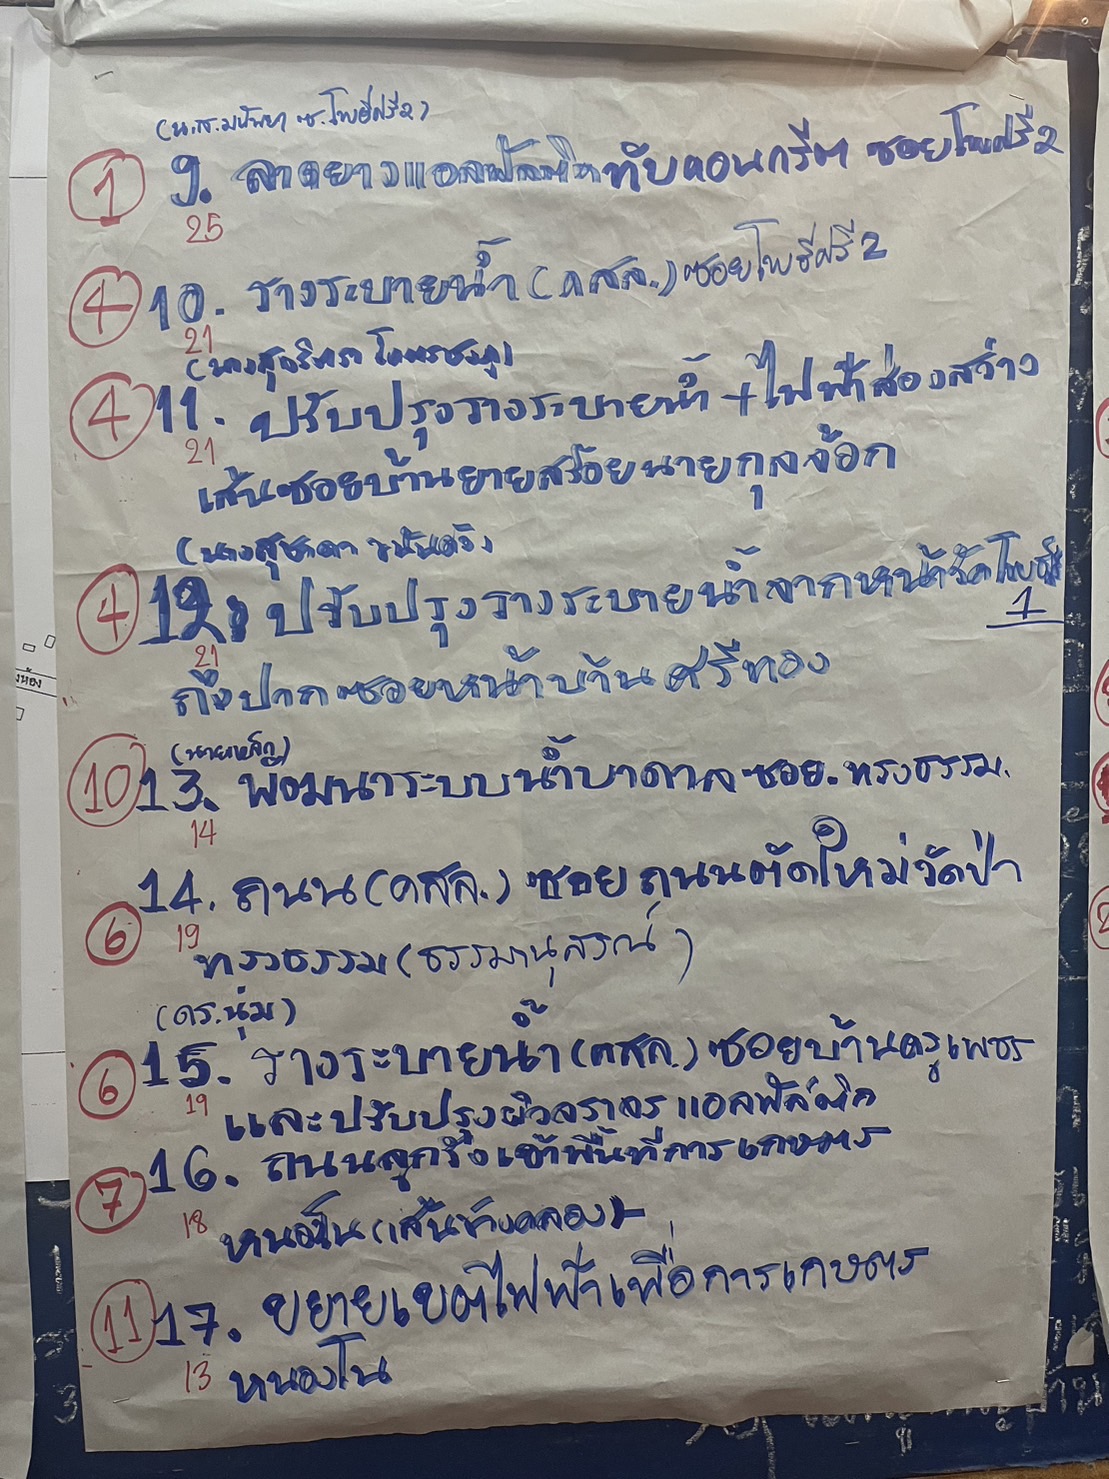 (น.ส.มนัทยา ซ.โพธิ์ศรี2)
① 9. ลาดยางแอสฟัลติกทับคอนกรีต ซอยโพธิ์ศรี2
25
④ 10. รางระบายน้ำ (คสล.) ซอยโพธิ์ศรี 2
21
(นางสุจริตรา
④ 11. ปรับปรุงรางระบายน้ำ +ไฟฟ้าส่องสว่าง
21
เส้นซอยบ้านยายสร้อยนายกุลจ้อก
(นางสุชาดา
④ 12. ปรับปรุงรางระบายน้ำจากหน้าวัดโพธิ์ศรี
1
21
ถึงปากซอยหน้าบ้านศรีทอง
(นายเหลิม)
⑩ 13. พัฒนาระบบน้ำบาดาล ซอย.ทรงธรรม.
14
14. ถนน (คสล.) ซอยถนนตัดใหม่วัดป่า
⑥ 19
ทรงธรรม (ธรรมานุสรณ์)
(ดร.นุ่ม)
⑥ 15. รางระบายน้ำ (คสล.) ซอยบ้านครูเพชร
19
และปรับปรุงผิวจราจรแอสฟัลติก
⑦ 16. ถนนลูกรังเข้าพื้นที่การเกษตร
18
หนองโน (เส้นข้างคลอง)
⑪ 17. ขยายเขตไฟฟ้าเพื่อการเกษตร
13
หนองโน